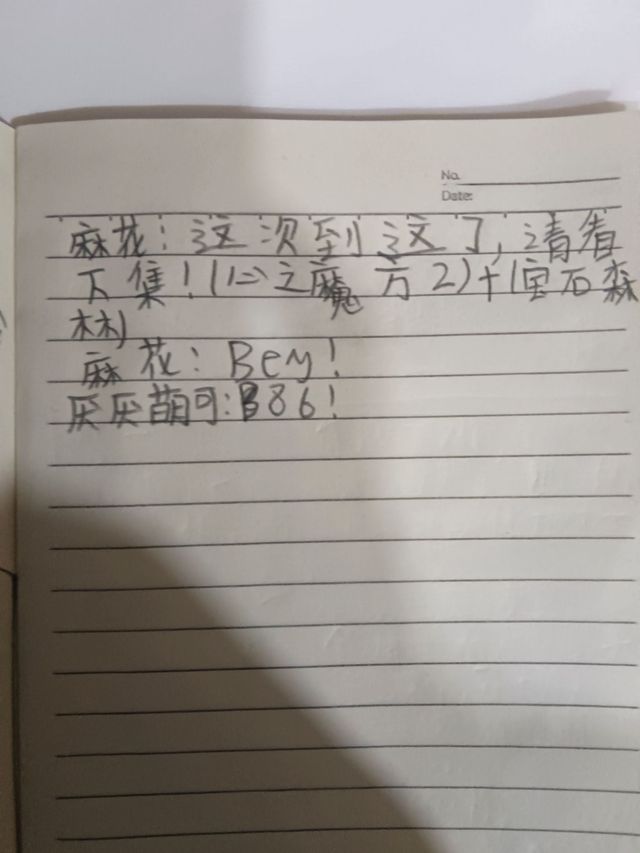 No.
Date:
麻花：这次到这了，请看
下集！(《之魔方2》+《宝石森
林》)
麻花：Bey!
厌厌萌可：886!